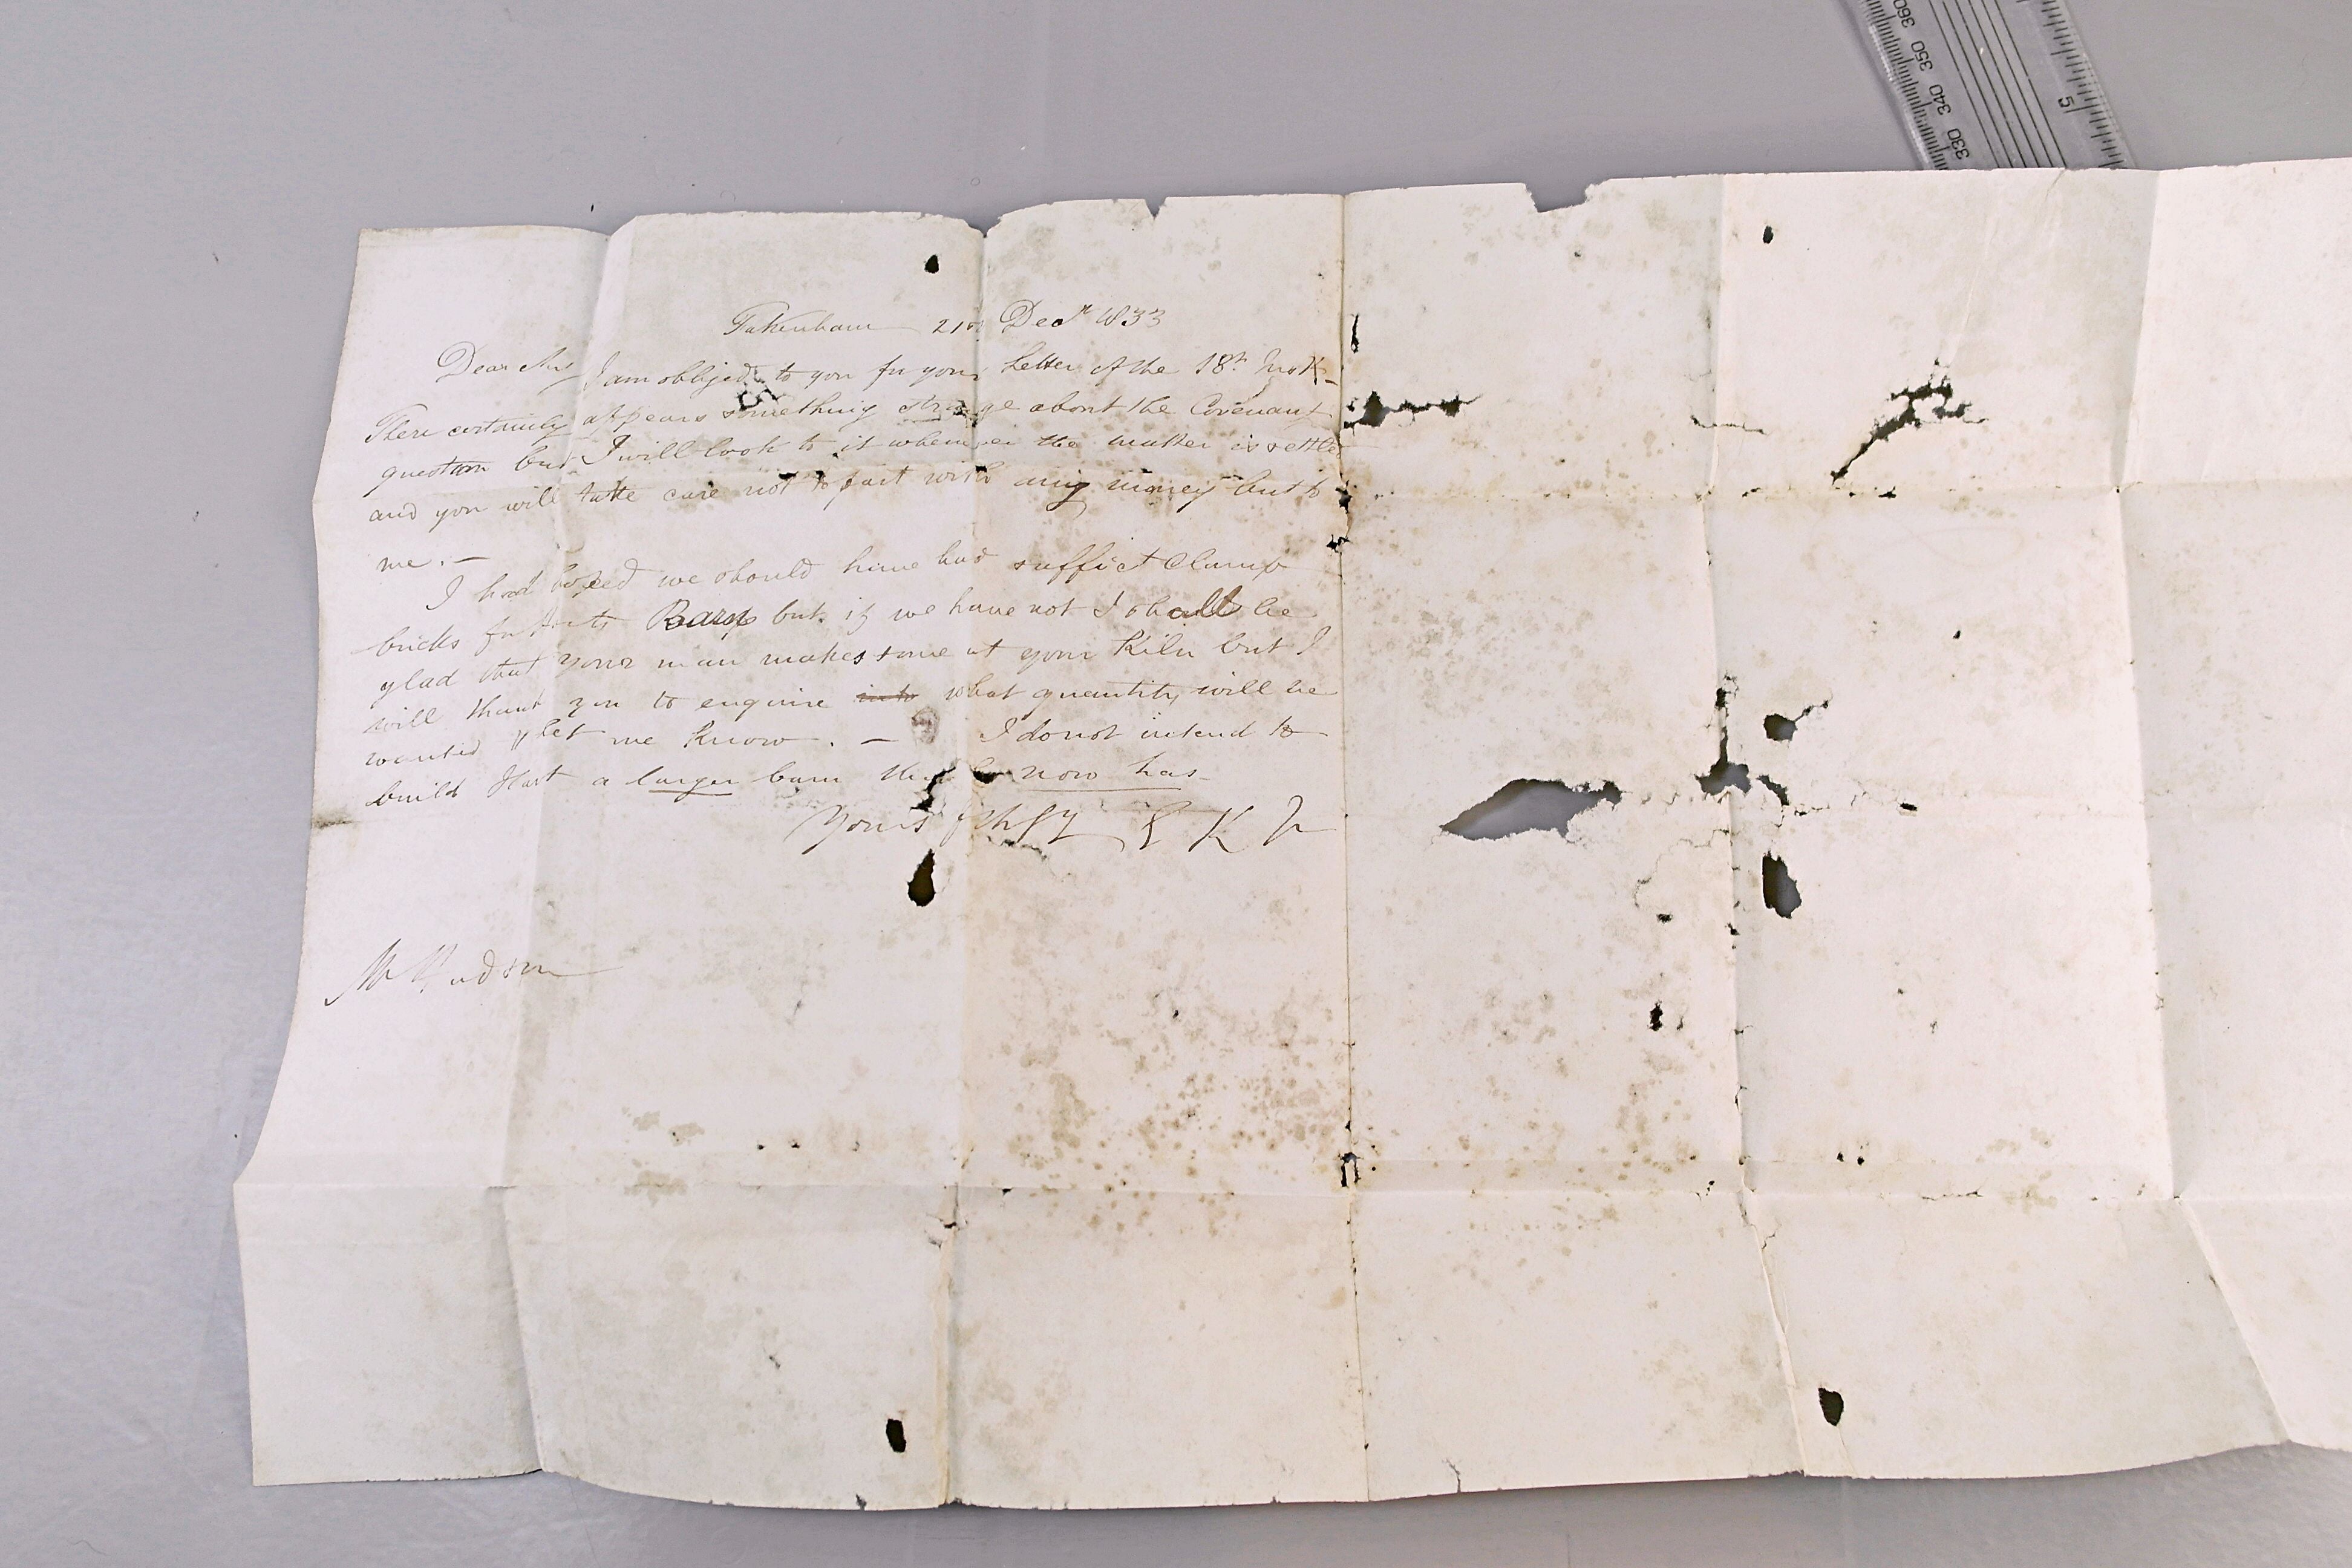 Pakenham 21st Decr 1833
Dear Sir I am obliged to you for your Letter of the 18th Inst -
There certainly appears something strange about the Covenant
question but I will look to it whenever the matter is settled
and you will take care not to part with any money but to
me. -
I had hoped we should have had suffict Clamp
bricks for Harts Barn but if we have not I shall be
glad that your man makes some at your Kiln but I
will thank you to enquire what quantity will be
wanted & let me know. - I do not intend to
build Hart a larger barn than he now has
Yours
Mr Hudson
360
350
340
330
5